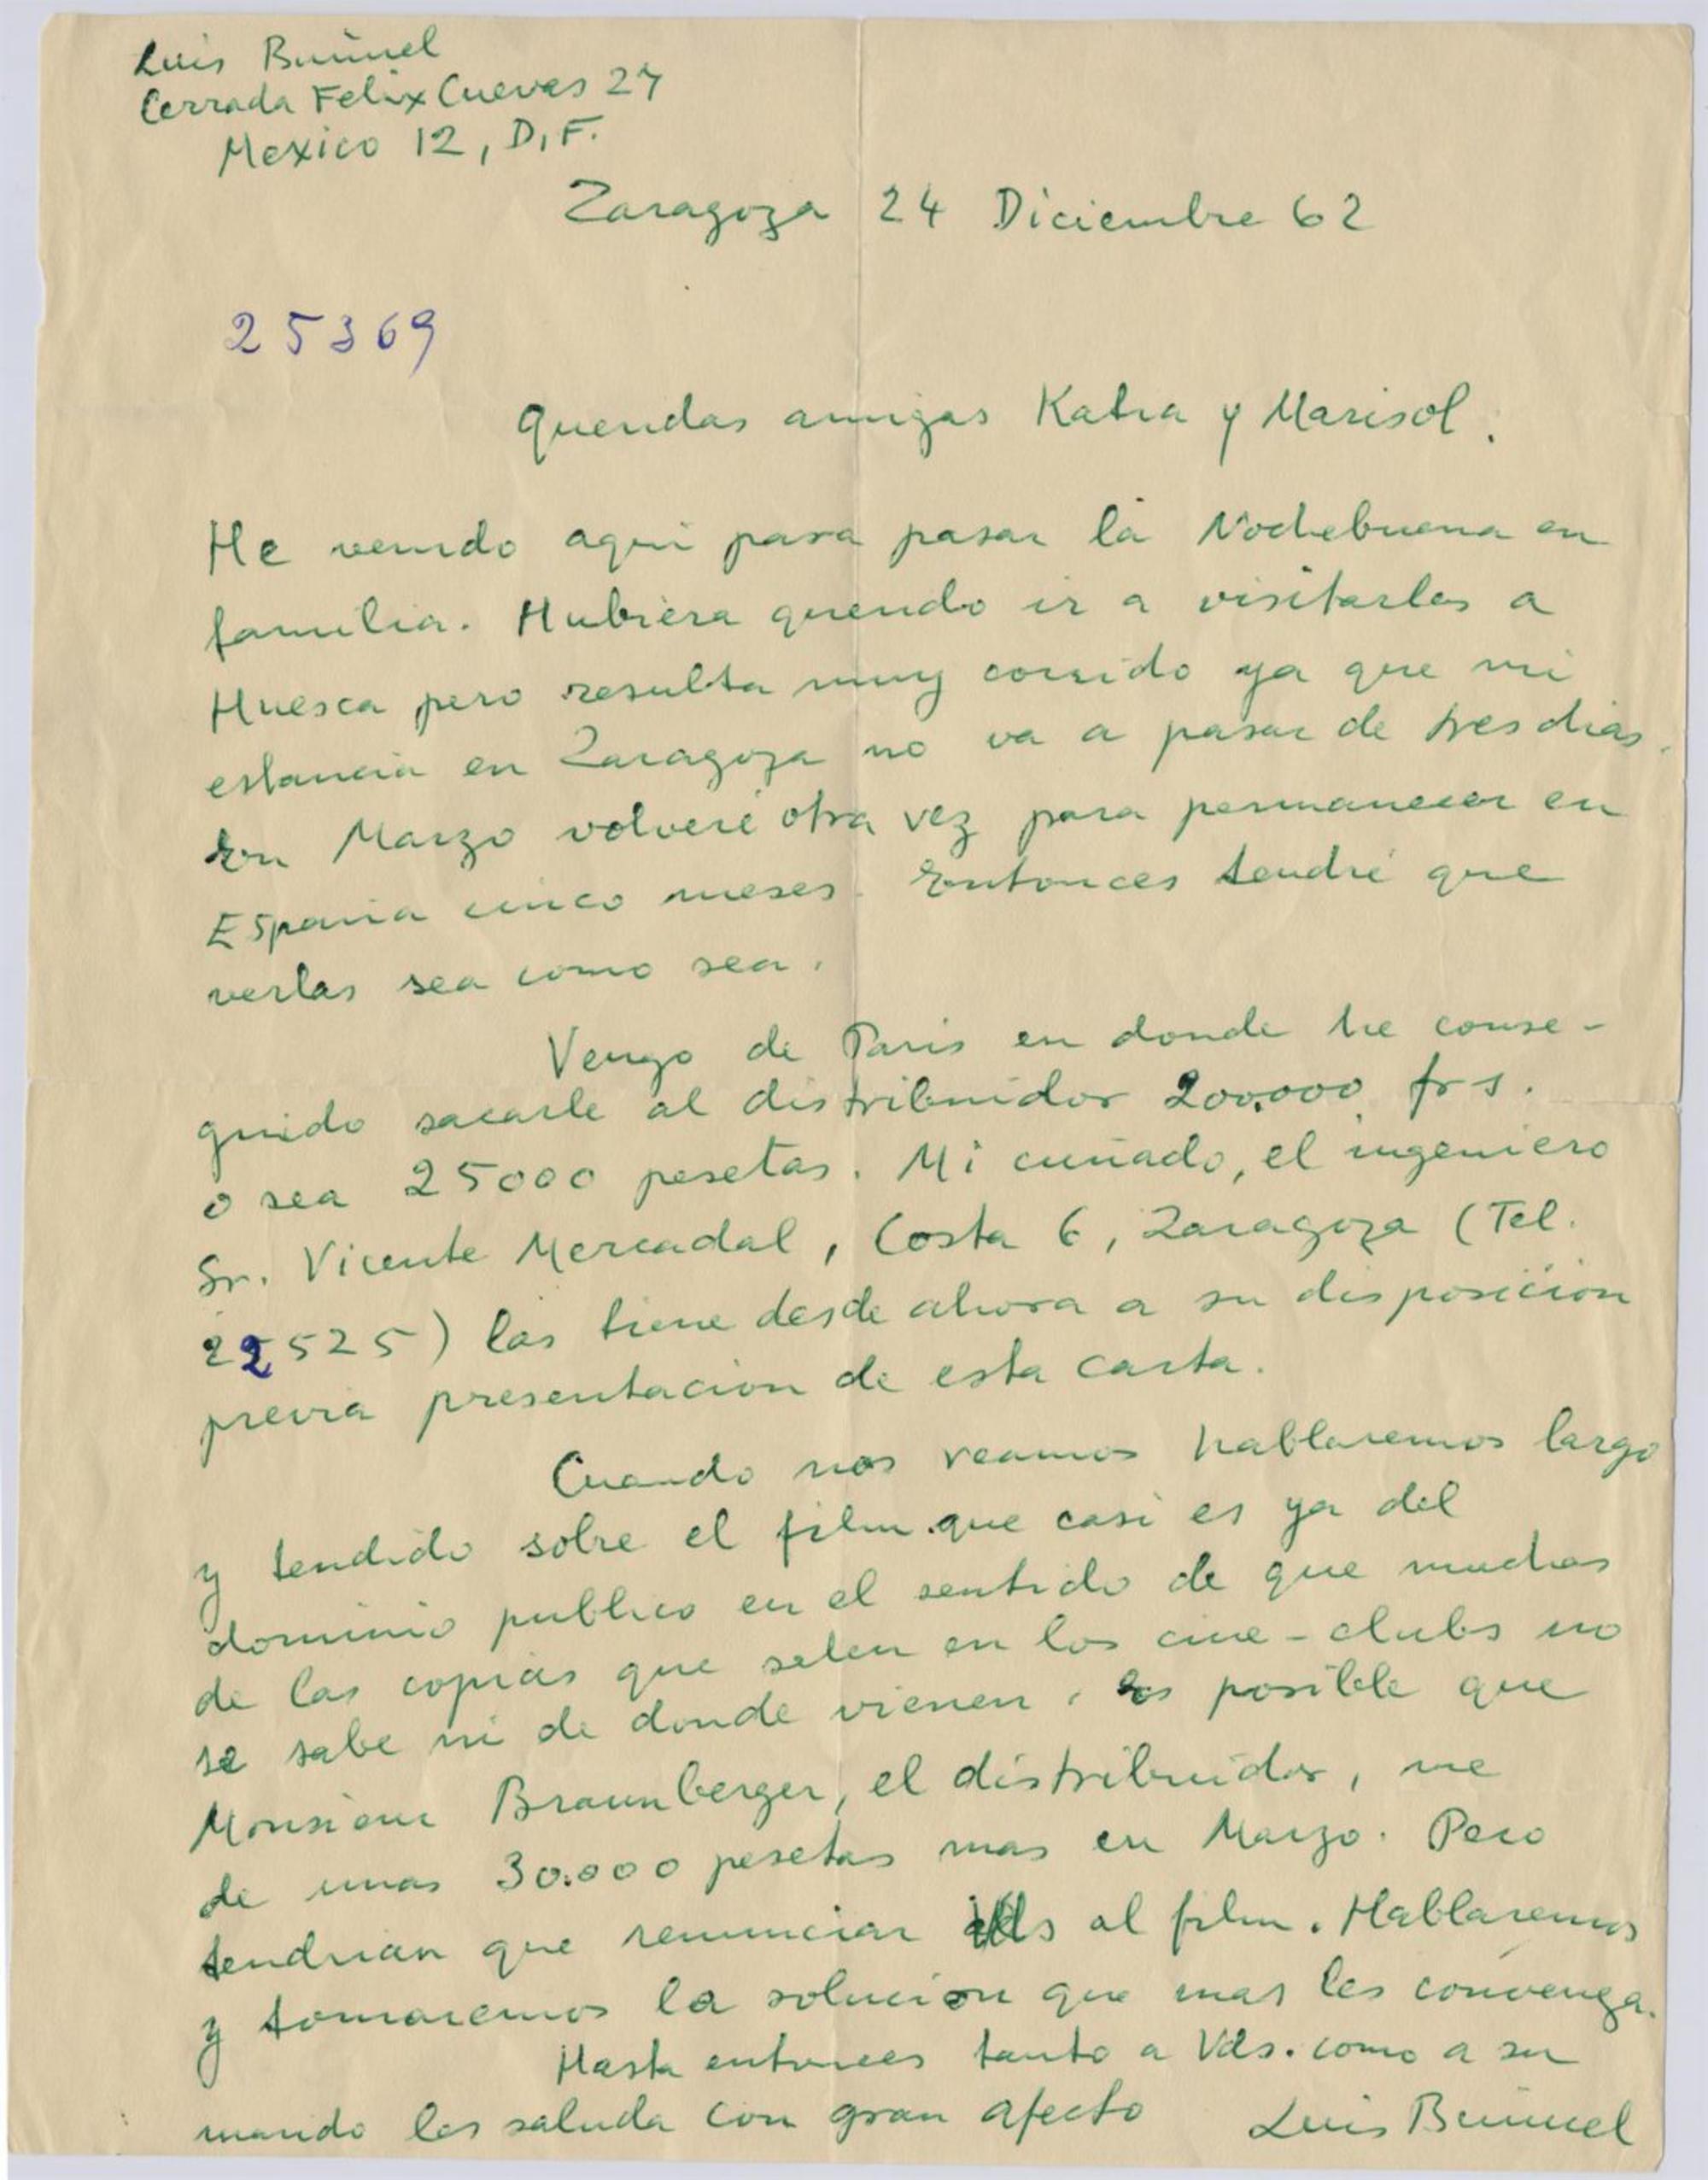 Luis Buñuel
Cerrada Felix Cuevas 27
Mexico 12, D.F.
Zaragoza 24 Diciembre 62
25369
Queridas amigas Katia y Marisol:
He venido aqui para pasar la Nochebuena en
familia. Hubiera querido ir a visitarlas a
Huesca pero resulta muy corrido ya que mi
estancia en Zaragoza no va a pasar de tres dias.
En Marzo volveré otra vez para permanecer en
España cinco meses. Entonces tendré que
verlas sea como sea.
Vengo de Paris en donde he conse-
guido sacarle al distribuidor 200.000 frs.
o sea 25000 pesetas. Mi cuñado, el ingeniero
Sr. Vicente Mercadal, Costa 6, Zaragoza (Tel.
22525) las tiene desde ahora a su disposición
previa presentacion de esta carta.
Cuando nos veamos hablaremos largo
y tendido sobre el film que casi es ya del
dominio publico en el sentido de que muchas
de las copias que salen en los cine-clubs no
se sabe ni de donde vienen. Es posible que
Monsieur Braunberger, el distribuidor, me
de unas 30.000 pesetas mas en Marzo. Pero
tendrian que renunciar Vds al film. Hablaremos
y tomaremos la solucion que mas les convenga.
Hasta entonces tanto a Vds. como a su
marido les saluda con gran afecto Luis Buñuel